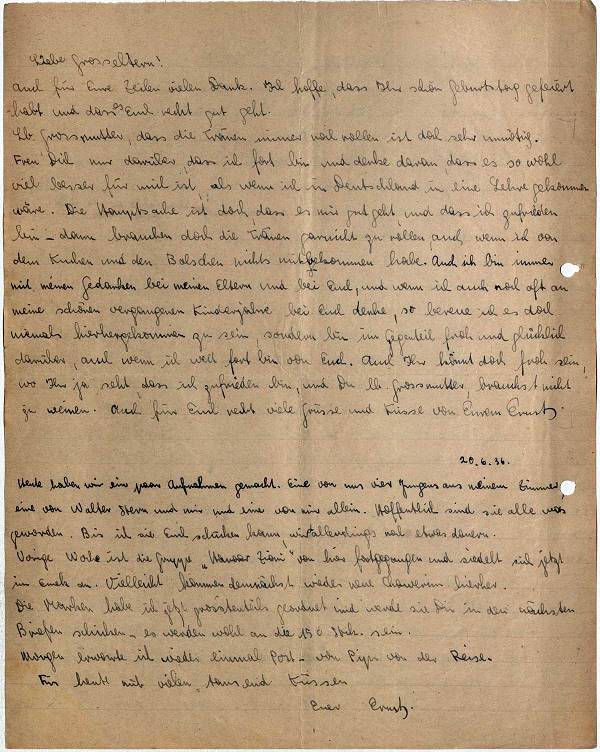 Liebe Grosseltern!
Auch für Eure Zeilen vielen Dank. Ich hoffe, dass Ihr schön Geburtstag gefeiert
habt und dass es Euch recht gut geht.
Lb. Grossmutter, dass die Tränen immer noch rollen ist doch sehr unnötig.
Freu Dich nur darüber, dass ich fort bin und denke daran, dass es so wohl
viel besser für mich ist, als wenn ich in Deutschland in eine Lehre gekommen
wäre. Die Hauptsache ist doch dass es mir gut geht, und dass ich zufrieden
bin – dann brauchen doch die Tränen garnicht zu rollen, auch wenn ich von
dem Kuchen und den Bolschen nichts mitgekommen habe. Auch ich bin immer
mit meinen Gedanken bei meinen Eltern und bei Euch, und wenn ich auch noch oft an
meine schönen vergangenen Kinderjahre bei Euch denke, so bereue ich es doch
niemals hierhergekommen zu sein, sondern bin im Gegenteil froh und glücklich
darüber, auch wenn ich weit fort bin von Euch. Auch Ihr könnt doch froh sein,
wo Ihr ja seht, dass ich zufrieden bin, und Du lb. Grossmutter, brauchst nicht
zu weinen. Auch für Euch recht viele Grüsse und Küsse von Eurem Ernst.
20.6.36.
Heute haben wir ein paar Aufnahmen gemacht. Eine von uns vier Jungens aus meinem Zimmer
eine von Walter Stern und mir und eine von mir allein. Hoffentlich sind sie alle was
geworden. Bis ich sie Euch schicken kann, wird allerdings noch etwas dauern.
Vorige Woche ist die Gruppe „Hanoar Zioni" von hier fortgegangen und siedelt sich jetzt
in Emek an. Vielleicht kommen demnächst wieder neue Chawerim hierher.
Die Marken habe ich jetzt grösstenteils geordnet und werde sie Dir in den nächsten
Briefen schicken – es werden wohl an die 150 Stck. sein.
Morgen erwarte ich wieder einmal Post – von Pips von der Reise.
Für heute mit vielen, tausend Küssen
Euer Ernst.